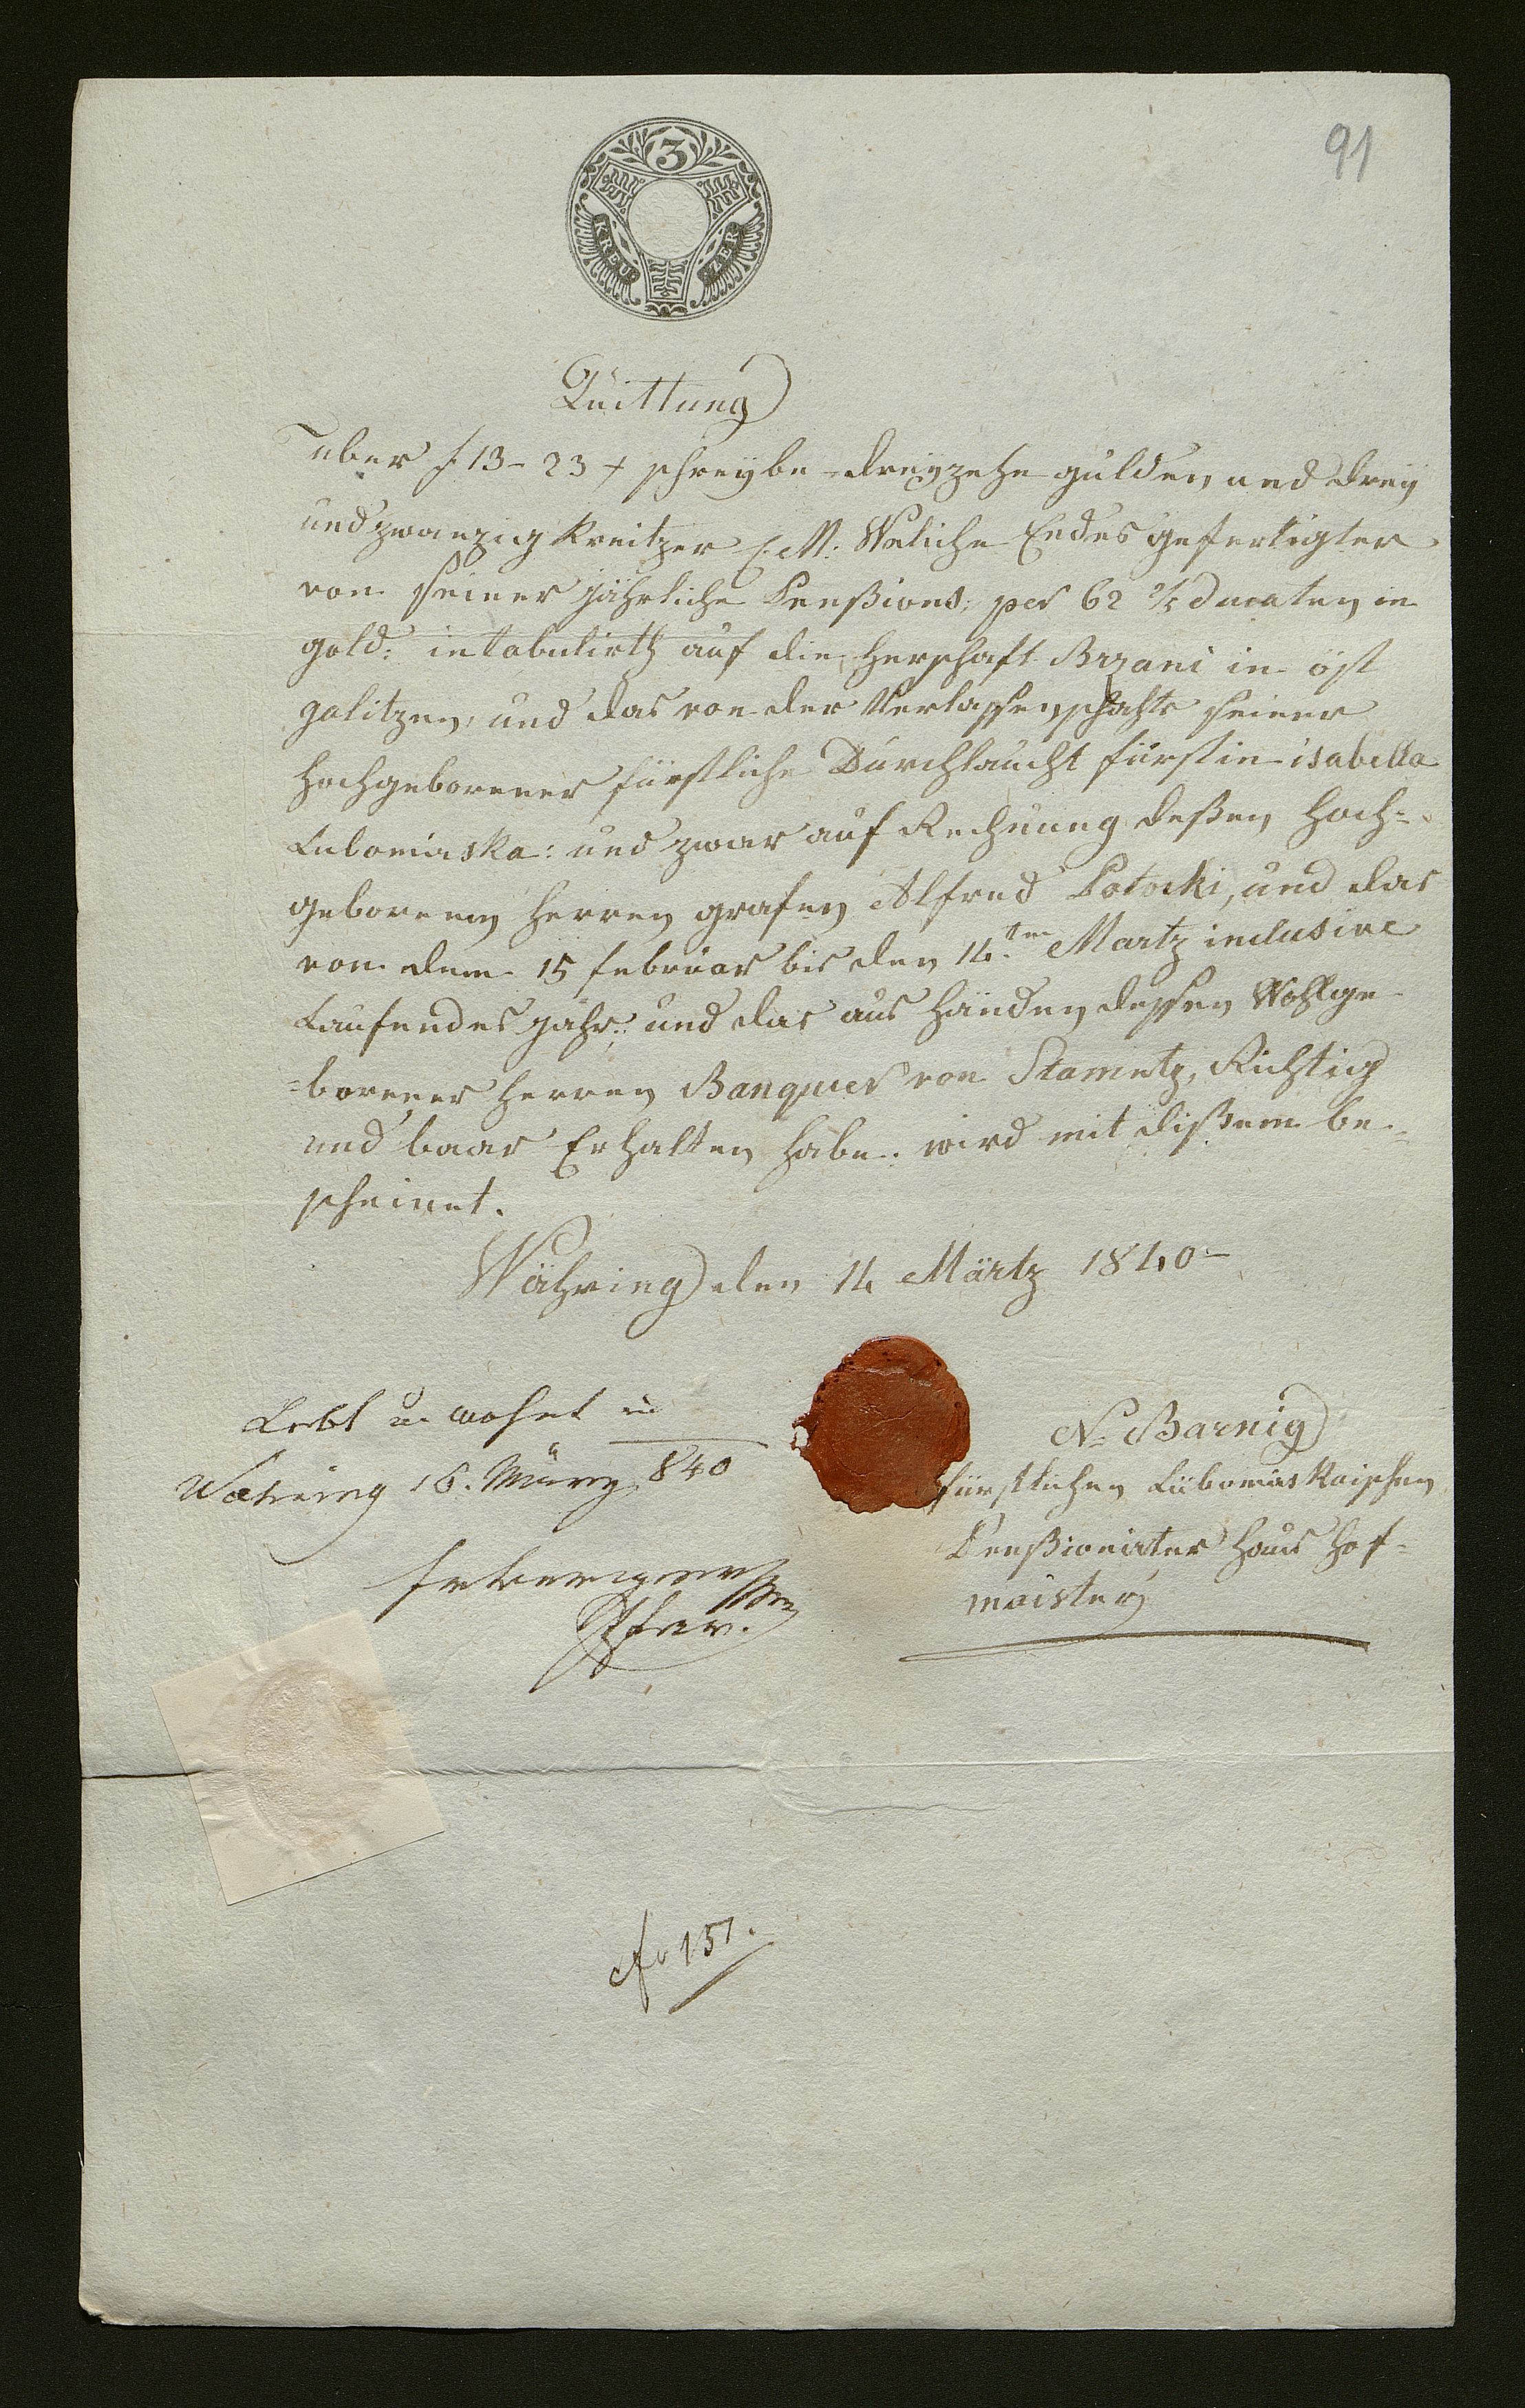 91
3
KREU ZER
Quittung
über f 13 - 23 x schreybe dreyzehe gulden und drey
und zwanzig Kreitzer C. M: Weliche Endes gefertigter
von seiner jährliche Penßions: per 62 ducaten in
gold: intabulirth auf die Herschaft Brzani in öst
galitzen, und das von der Verlassenschafts seiner
Hochgeborener fürstliche Durchlaucht fürstin isabella
Lubomirska: und zwar auf Rechnung deßen Hoch=
geborenen Herren grafen Alfred Potocki, und das
von dem 15 februar bis den 14.ten Martz inclusive
Laufendes jahr: und das aus Händen dessen Wohlge
=borener Herren Banquier von Stametz, Richtig
und baar Erhalten habe. wird mit dißem be=
scheinet.
Währing den 14 Märtz 1840
Lebt u. wohnt in
Währing 16. März 840
Pfarr.
N. Barnig
fürstlichen Lübomirskaischen
Penßionirter Haus Hof=
maister
No 151.